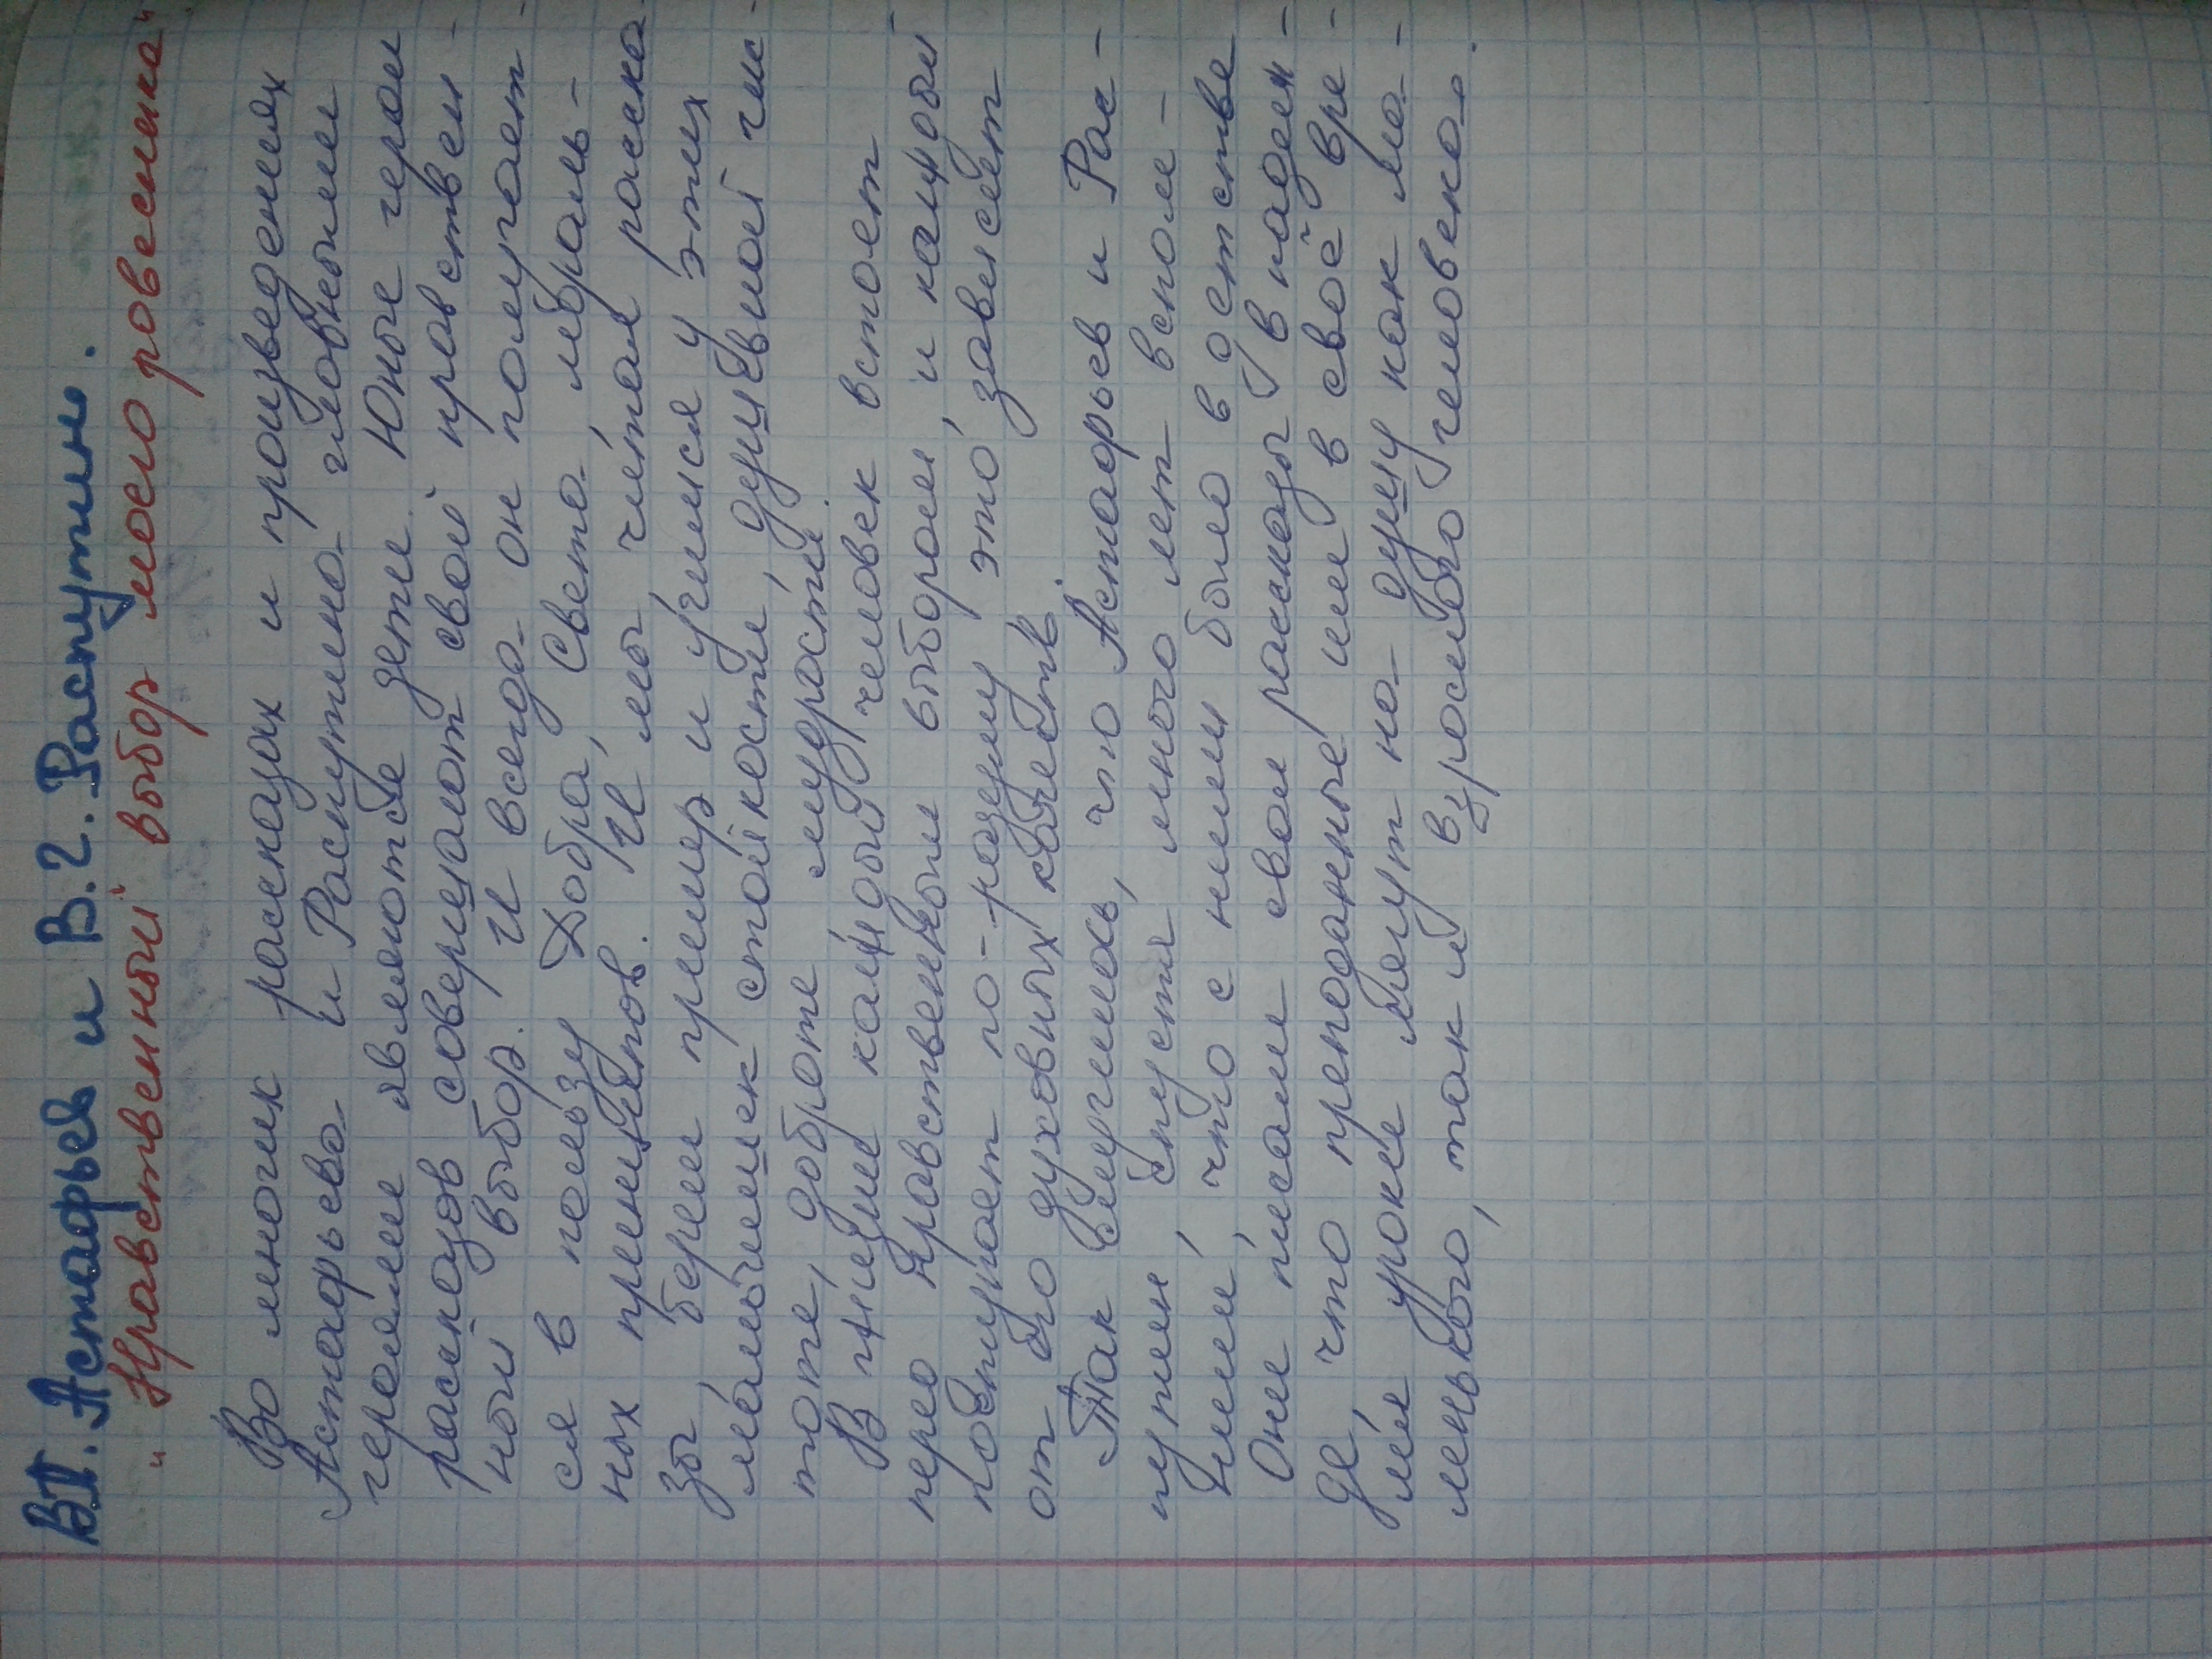 В.П. Астафьев и В.Г. Распутин.
"Нравственный выбор моего ровесника"
Во многих рассказах и произведениях
Астафьева и Распутина главными
героями являются дети. Юные герои
рассказов совершают свой нравствен-
ный выбор. И всегда он получает-
ся в пользу Добра, Света, мораль-
ных принципов. И мы, читая расска-
зы, берем пример и учимся у этих
мальчишек стойкости, душевной чис-
тоте, доброте, мудрости.
В жизни каждый человек встает
перед нравственным выбором, и каждый
поступает по-разному, это зависит
от его духовных качеств.
Так случилось, что Астафьев и Рас-
путин, спустя много лет вспом-
нили, что с ними было в детстве
Они писали свои рассказы в надеж-
де, что преподанные им в своё вре-
мя уроки лягут на душу как ма-
ленького, так и взрослого человека.